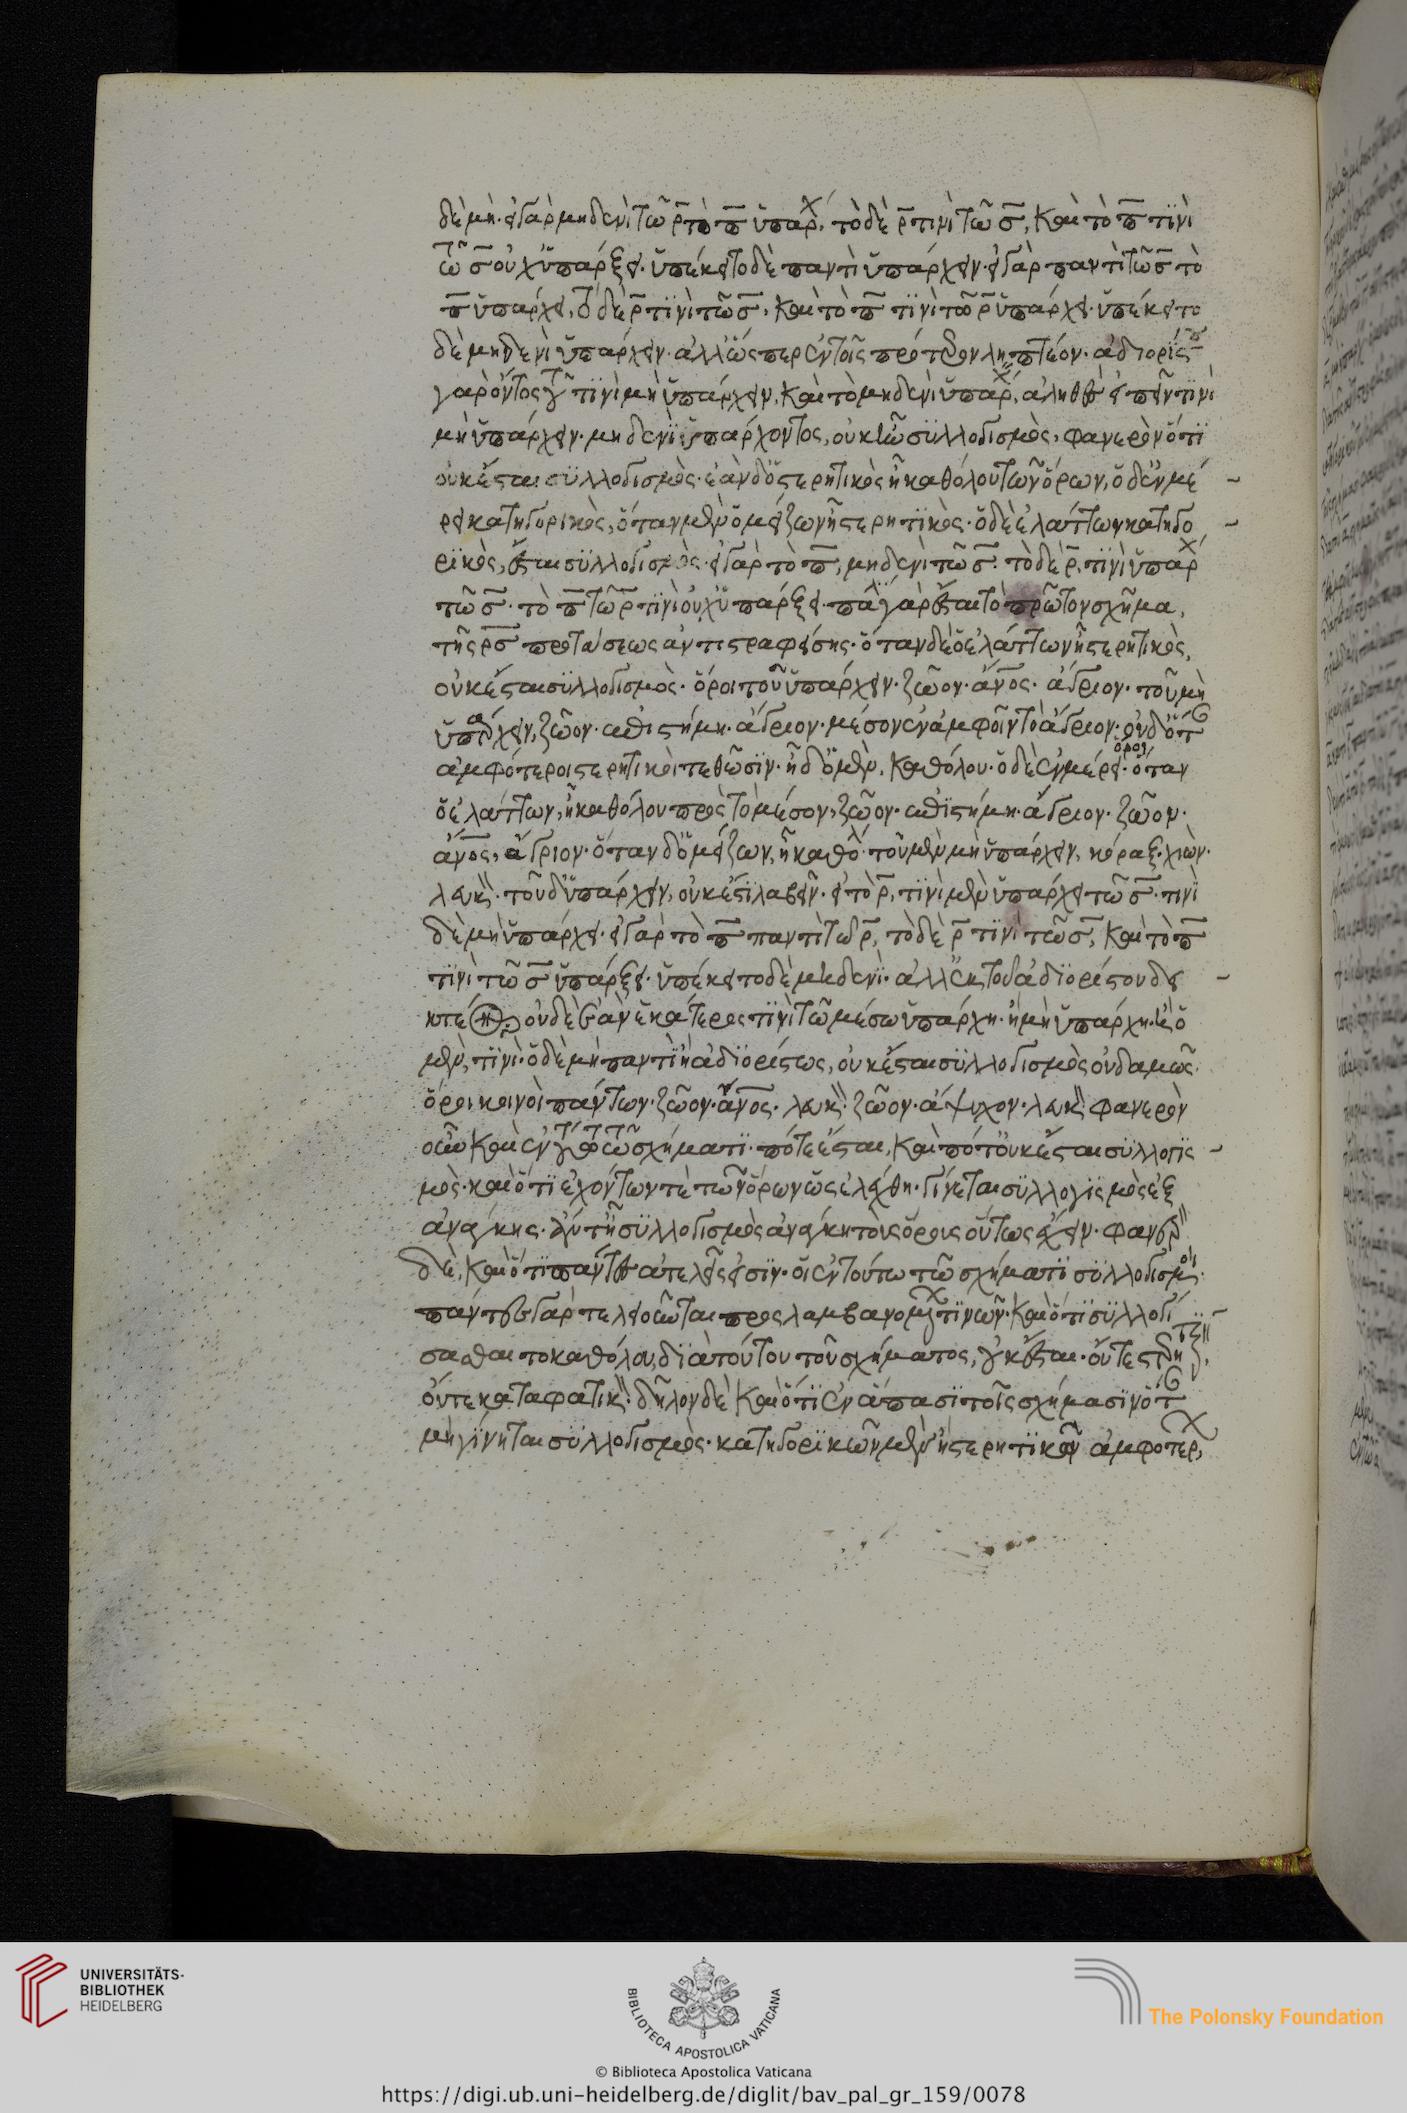 δὲ μή· εἰ γὰρ μηδενὶ τῷ ρ̅ τὸ π̅ ὑπάρχ, τὸ δὲ ρ̅ τινὶ τῷ σ̅, καὶ τὸ π̅ τινὶ
τῷ σ̅ οὐχ ὑπάρξει· ὑπέκειτο δὲ παντὶ ὑπάρχειν· εἰ γὰρ παντὶ τῷ σ̅ τὸ
π̅ ὑπάρχει, τὸ δὲ ρ̅ τινὶ τῷ σ̅, καὶ τὸ π̅ τινὶ τῷ ρ̅ ὑπάρχει· ὑπέκειτο
δὲ μηδενὶ ὑπάρχειν· ἀλλ' ὥσπερ ἐν τοῖς πρότερον ληπτέον· ἀδιορίστου
γὰρ ὄντος τοῦ τινὶ μὴ ὑπάρχειν, καὶ τὸ μηδενὶ ὑπάρχ, ἀληθὲς εἰπεῖν τινὶ
μὴ ὑπάρχειν· μηδενὶ ὑπάρχοντος, οὐκ ἦν συλλογισμὸς, φανερὸν ὅτι
οὐκ ἔσται συλλογισμὸς· ἐὰν δ' ὁ στερητικὸς ᾖ καθόλου τῶν ὅρων, ὁ δ' ἐν μέ
ρει κατηγορικὸς, ὅταν μὲν ὁ μείζων ᾖ στερητικὸς· ὁ δὲ ἐλάττων κατηγο
ρικὸς, ἔσται συλλογισμὸς· εἰ γὰρ τὸ π̅, μηδενὶ τῷ σ̅· τὸ δὲ ρ̅, τινὶ ὑπάρχ
τῷ σ̅· τὸ π̅ τῷ ρ̅ τινὶ οὐχ ὑπάρξει· πάλι γὰρ ἔσται τὸ πρῶτον σχῆμα,
τῆς ρ̅σ̅ προτάσεως ἀντιστραφείσης· ὅταν δὲ ὁ ἐλάττων ᾖ στερητικὸς,
οὐκ ἔσται συλλογισμὸς· ὅροι τοῦ ὑπάρχειν· ζῷον· ἄνος· ἄγριον· τοῦ μὴ
ὑπάρχειν, ζῷον· ἐπιστήμη· ἄγριον· μέσον ἐν ἀμφοῖν τὸ ἄγριον· οὐδ' ὅτ
ἀμφότεροι στερητικοὶ τεθῶσιν· ᾖ δ' ὁ μὲν, καθόλου· ὁ δὲ ἐν μέρει· ὅροι ὅταν
ὁ ἐλάττων, ᾖ καθόλου πρὸς τὸ μέσον, ζῷον· ἐπιστήμη· ἄγριον· ζῷον·
ἄνος, ἄγριον· ὅταν δ' ὁ μείζων, ᾖ καθόλ· τοῦ μὲν μὴ ὑπάρχειν, κόραξ· χιών·
λευκ· τοῦ δ' ὑπάρχειν, οὐκ ἔστι λαβεῖν· εἰ τὸ ρ̅, τινὶ μὲν ὑπάρχει τῷ σ̅· τινὶ
δὲ μὴ ὑπάρχει· εἰ γὰρ τὸ π̅ παντὶ τῷ ρ̅, τὸ δὲ ρ̅ τινὶ τῷ σ̅, καὶ τὸ π̅
τινὶ τῷ σ̅ ὑπάρξει· ὑπέκειτο δὲ μηδενὶ· ἀλλ' ἐκ τοῦ ἀδιορίστου δει
κτέον· οὐδὲ ἐὰν ἑκάτερος τινὶ τῷ μέσῳ ὑπάρχῃ· ἢ μὴ ὑπάρχῃ· ἢ ὁ
μὲν, τινὶ· ὁ δὲ μὴ παντὶ ἢ ἀδιορίστως, οὐκ ἔσται συλλογισμὸς οὐδαμῶς·
ὅροι κοινοὶ πάντων· ζῷον· ἄνος· λευκ· ζῷον· ἄψυχον· λευκ· φανερὸν
οὖν καὶ ἐν τούτῳ τῷ σχήματι· πότε ἔσται, καὶ πότ' οὐκ ἔσται συλλογισ
μὸς· καὶ ὅτι ἐχόντων τὲ τῶν ὅρων ὡς ἐλέχθη· γίνεται συλλογισμὸς ἐξ
ἀνάγκης· ἄν τ' ᾖ συλλογισμὸς ἀνάγκη τοὺς ὅρους οὕτως ἔχειν· φανερ
δὲ, καὶ ὅτι πάντες ἀτελεῖς εἰσὶν· οἱ ἐν τούτῳ τῷ σχήματι συλλογισμοί·
πάντες γὰρ τελειοῦνται προσλαμβανομένων τινῶν· καὶ ὅτι συλλογί
σασθαι τὸ καθόλου, διὰ τούτου τοῦ σχήματος, οὐκ ἔσται· οὔτε στερητικ,
οὔτε καταφατικ· δῆλον δὲ καὶ ὅτι ἐν ἅπασι τοῖς σχήμασιν ὅτ
μὴ γίνηται συλλογισμὸς· κατηγορικῶν μὲν ἢ στερητικῶν ἀμφοτέρ,
UNIVERSITÄTS-
BIBLIOTHEK
HEIDELBERG
BIBLIOTECA APOSTOLICA VATICANA
The Polonsky Foundation
© Biblioteca Apostolica Vaticana
https://digi.ub.uni-heidelberg.de/diglit/bav_pal_gr_159/0078